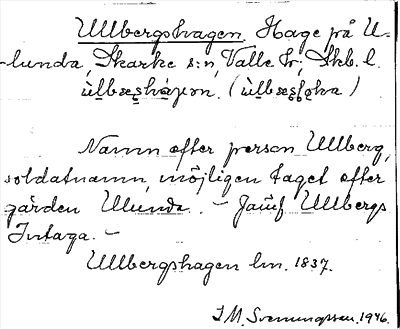 Ullbergshagen. Hage på U-
lunda, Skarke s:n, Valle hr, Skb. l.
Namn efter person Ullberg,
soldatnamn, möjligen taget efter
gården Ulunda. - Jämf Ullbergs
Intaga. -
Ullbergshagen lm. 1837.
I M. Svenungsson. 1946.